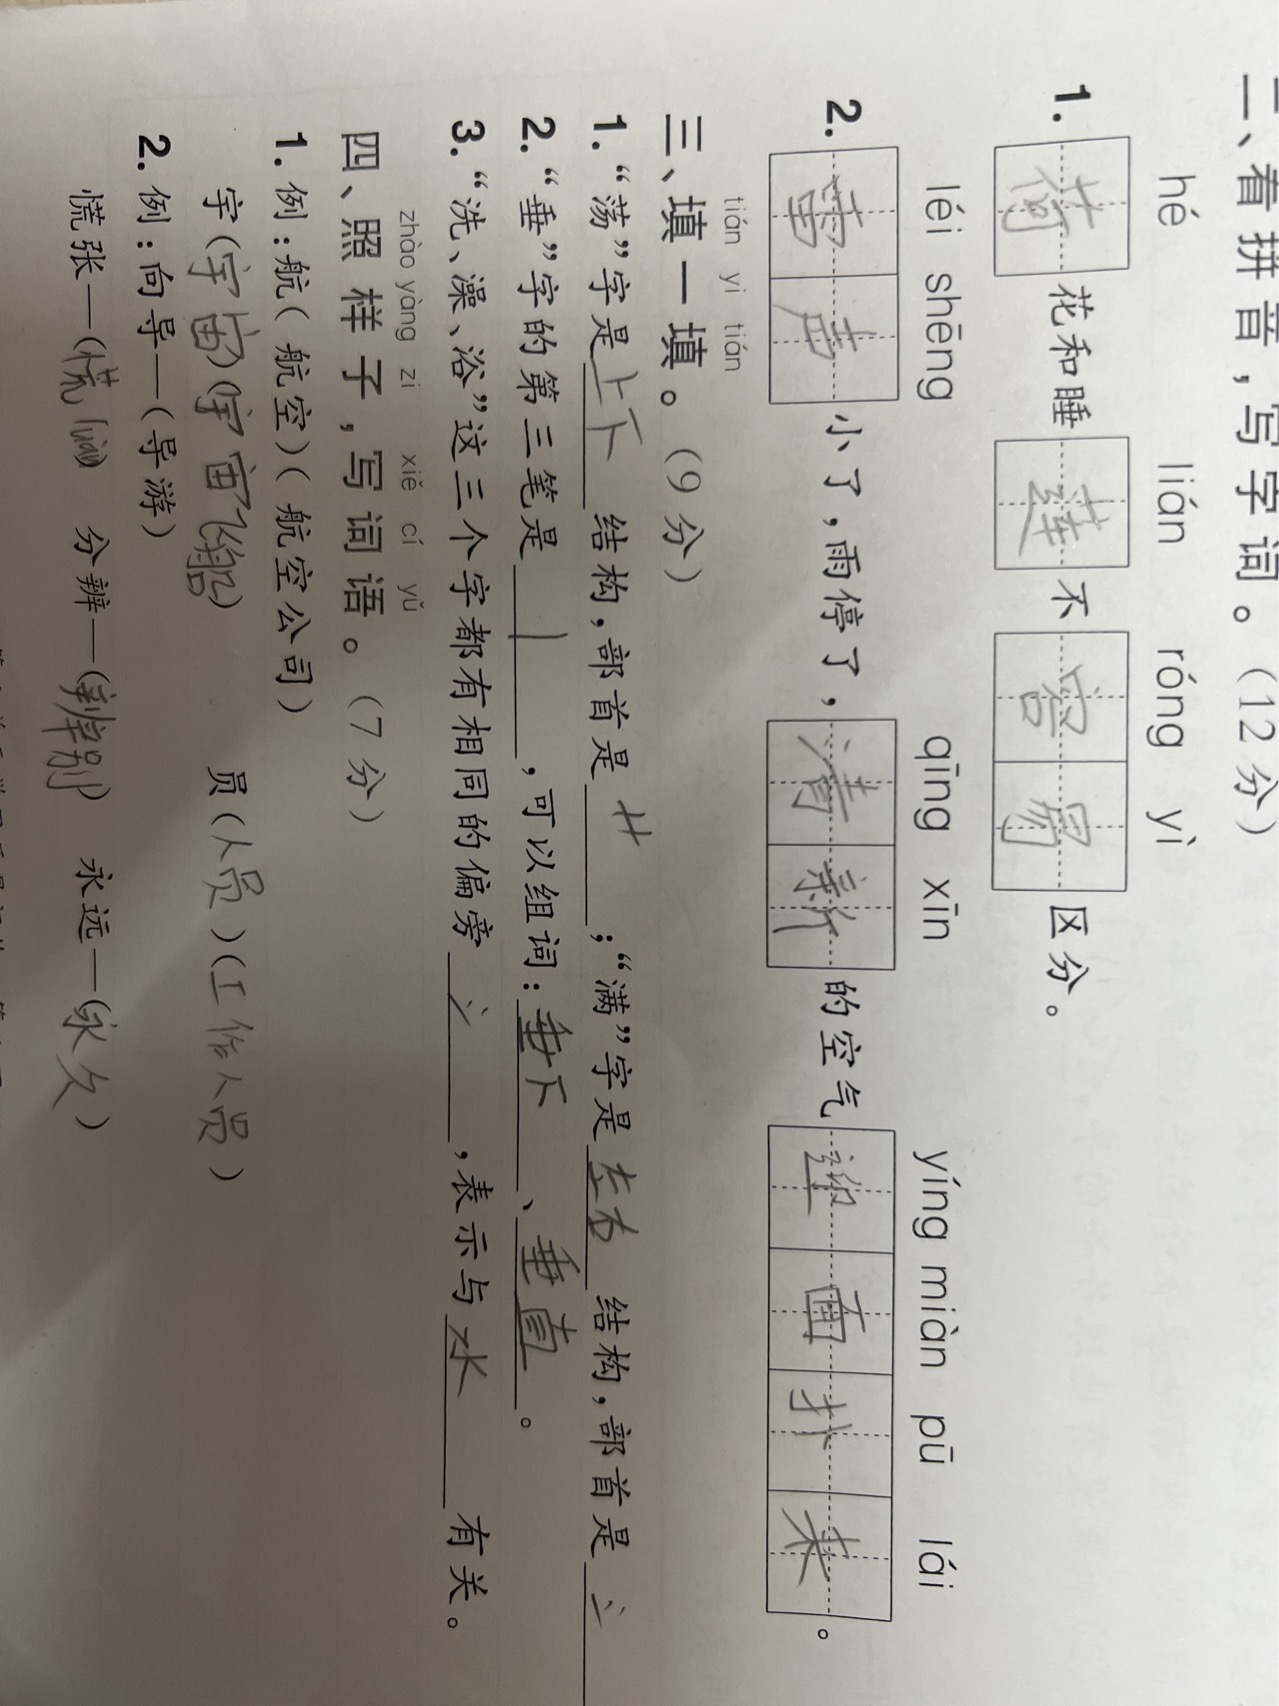 二、看拼音，写字词。（12分）
hé lián róng yì
1. 荷花和睡莲不容易区分。
léi shēng qīng xīn yíng miàn pū lái
2. 雷声小了，雨停了，清新的空气迎面扑来。
tián yi tián
三、填一填。（9分）
1. “荡”字是上下结构，部首是艹；“满”字是左右结构，部首是氵
2. “垂”字的第三笔是丨，可以组词：垂下、垂直。
3. “洗、澡、浴”这三个字都有相同的偏旁氵，表示与水有关。
zhào yàng zi xiě cí yǔ
四、照样子，写词语。（7分）
1. 例：航（航空）（航空公司）
宇（宇宙）（宇宙飞船） 员（人员）（工作人员）
2. 例：向导—（导游）
慌张—（慌luàn） 分辨—（辨别） 永远—（永久）